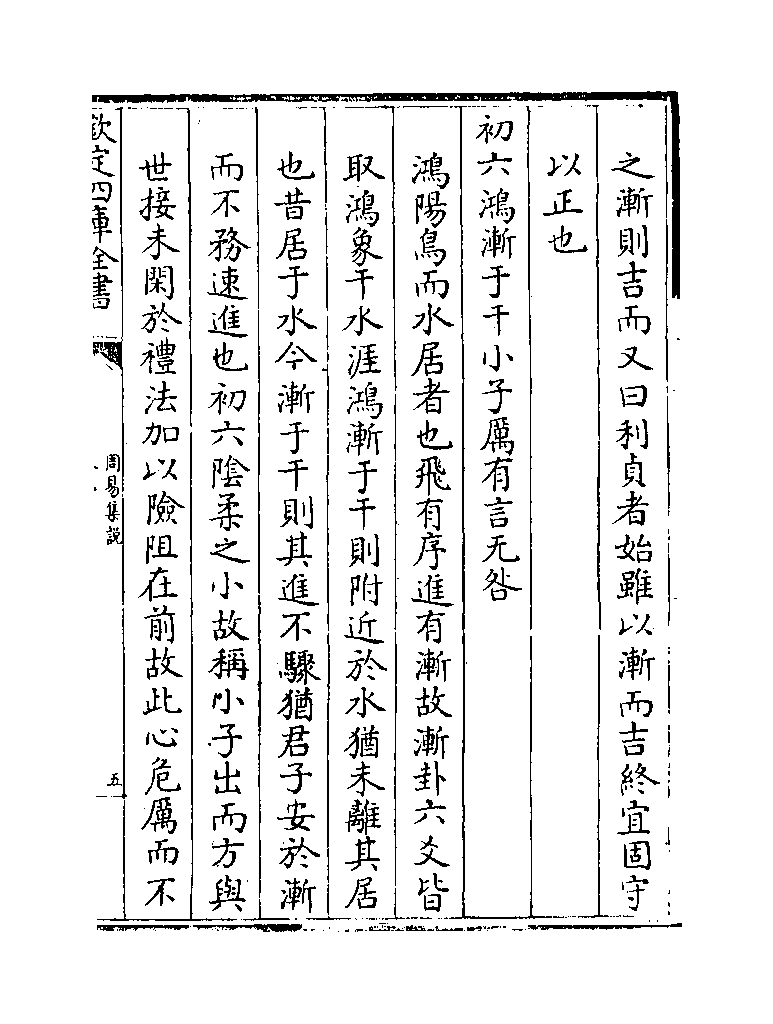 之漸則吉而又曰利貞者始雖以漸而吉終宜固守
以正也
初六鴻漸于干小子厲有言无咎
鴻陽鳥而水居者也飛有序進有漸故漸卦六爻皆
取鴻象干水涯鴻漸于干則附近於水猶未離其居
也昔居于水今漸于干則其進不驟猶君子安於漸
而不務速進也初六陰柔之小故稱小子出而方與
世接未閑於禮法加以險阻在前故此心危厲而不
欽定四庫全書
周易集説
五